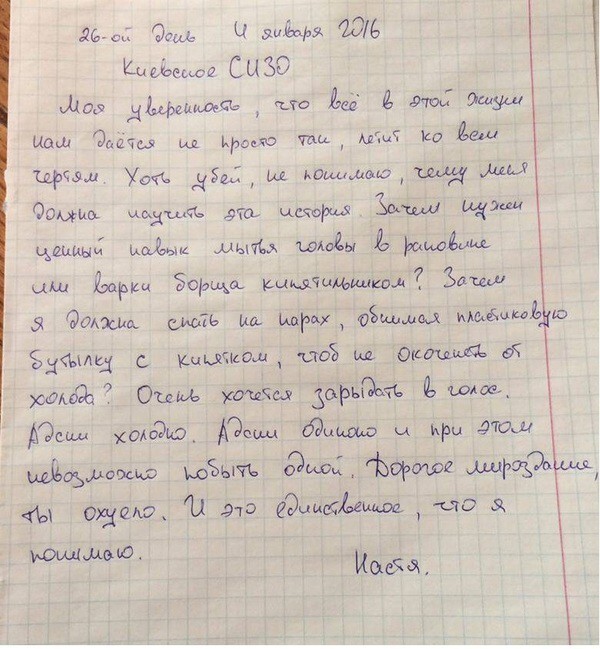 26-ой день 4 января 2016
Киевское СИЗО
Моя уверенность, что всё в этой жизни
нам даётся не просто так, летит ко всем
чертям. Хоть убей, не понимаю, чему меня
должна научить эта история. Зачем нужен
ценный навык мытья головы в раковине
или варки борща кипятильником? Зачем
я должна спать на нарах, обнимая пластиковую
бутылку с кипятком, чтоб не окоченеть от
холода? Очень хочется зарыдать в голос.
Адски холодно. Адски одиноко и при этом
невозможно побыть одной. Дорогое мироздание,
ты охуело. И это единственное, что я
понимаю.
Настя.